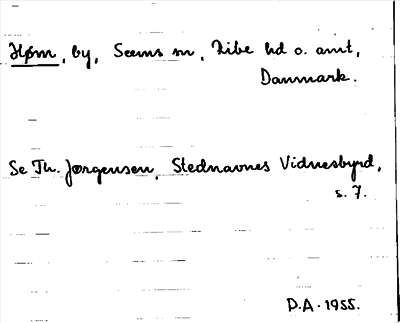 Høm, by, Seems sn, Ribe hd o. amt,
Danmark.
Se Th. Jørgensen, Stednavnes Vidnesbyrd,
s. 7.
D.A. 1955.